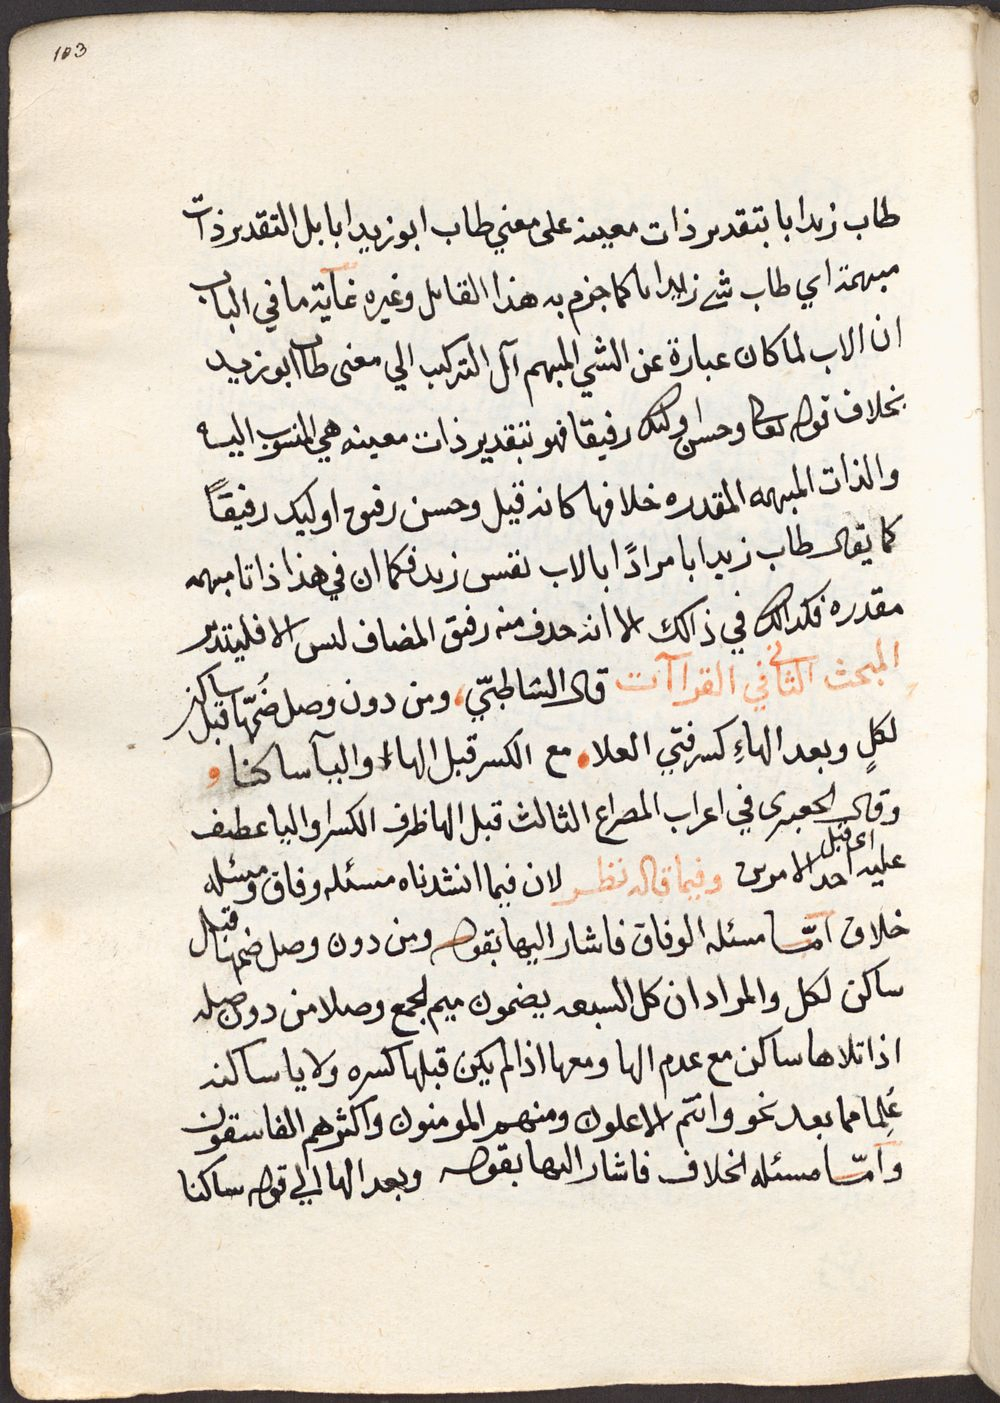 103
طاب زيد ابا بتقدير ذات معينه على معني طاب ابو زيد ابا بل التقدير ذات
مبهمة اي طاب شي زيد ابا كما جزم به هذا القايل وغيره غاية ما في الباب
ان الاب لما كان عبارة عن الشي المبهم آل التركيب الي معنى طاب ابو زيد
بخلاف قوله تعالى وحسن اوليك رفيقا فهو بتقدير ذات معينه هي المنسوب اليه
والذات المبهمه المقدره خلافها كانه قيل وحسن رفيق اوليك رفيقاً
كما يقال طاب زيد ابا مراداً ابالاب نفس زيد فكما ان في هذا ذاتا مبهمه
مقدره فكذالك في ذالك الا انه حذف منه رفيق المضاف ليس الا فليتدبر
المبحث الثاني في القراآت قال الشاطبيّ، ومن دون وصل ضُمّها قبل ساكن
لكلٍ وبعد الهاءِ كسر فتي العلا، مع الكسر قبل الهاء او اليآ ساكنا،
وقال الجعبري في اعراب المصراع الثالث قبل الها ظرف الكسر او اليا عطف
عليه اي قبل احد الامرين وفيما قاله نظر لان فيما انشدناه مسئله وفاق ومسئله
خلاف امّا مسئله الوفاق فاشار اليها بقوله ومن دون وصل ضمها قبل
ساكن لكل والمراد ان كل السبعه يضمون ميم الجمع وصلا من دون صله
اذا تلاها ساكن مع عدم الها ومعها اذا لم يكن قبلها كسره ولا يا ساكنه
عُلِما مما بعد نحو وانتم الاعلون ومنهم المومنون واكثرهم الفاسقون
وامّا مسئله الخلاف فاشار اليها بقوله وبعد الها الي قوله ساكنا